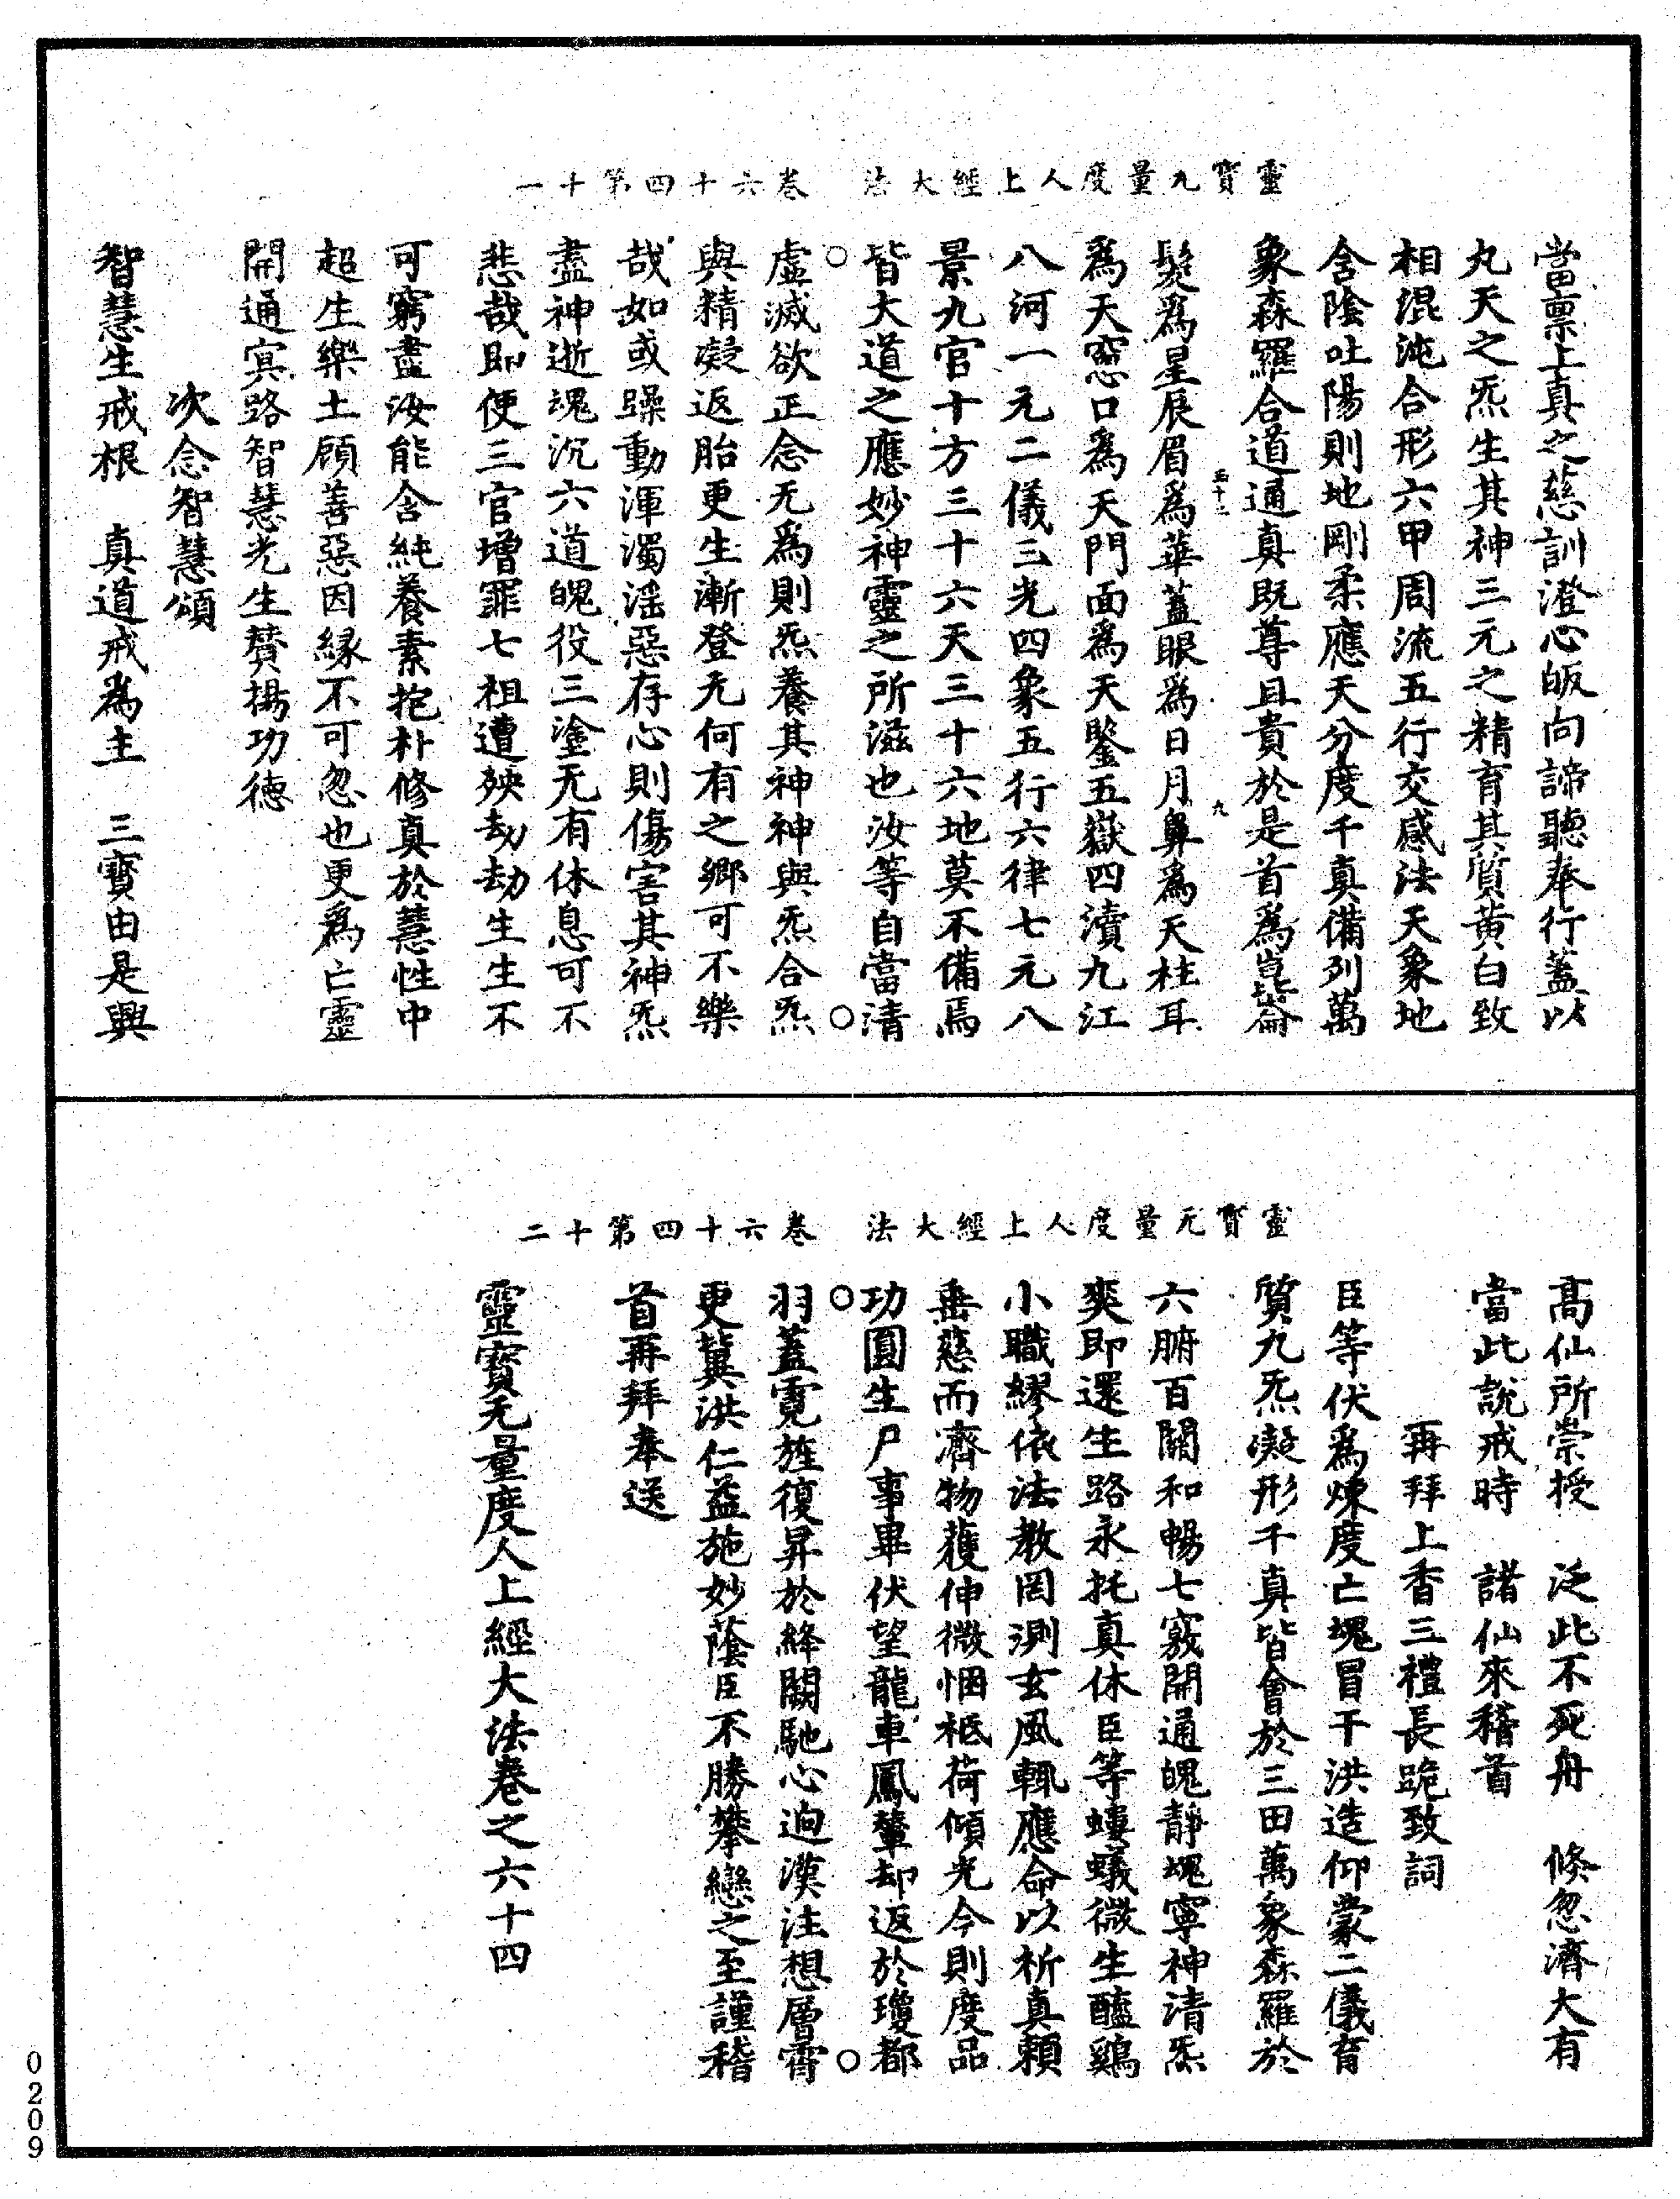 靈寶无量度人上經大法　卷六十四第十一
當禀上真之慈訓澄心皈向諦聽奉行蓋以
九天之炁生其神三元之精育其質黃白致
相混沌合形六甲周流五行交感法天象地
含陰吐陽則地剛柔應天分度千真備列萬
象森羅合道通真既尊且貴於是首爲崑崙
髮爲星辰眉爲華蓋眼爲日月鼻爲天柱耳
爲天窓口爲天門面爲天鑒五嶽四瀆九江
八河一元二儀三光四象五行六律七元八
景九宮十方三十六天三十六地莫不備焉
皆大道之應妙神靈之所滋也汝等自當清
虛滅欲正念无爲則炁養其神神與炁合炁
與精凝返胎更生漸登无何有之鄉可不樂
哉如或躁動渾濁滛惡存心則傷害其神炁
盡神逝魂沉六道魄役三塗无有休息可不
悲哉即便三官增罪七祖遭殃劫劫生生不
可窮盡汝能含純養素抱朴修真於慧性中
超生樂土顧善惡因緣不可忽也更爲亡靈
開通冥路智慧光生贊揚功德
次念智慧頌
智慧生戒根　真道戒爲主　三寶由是興
靈寶无量度人上經大法　卷六十四第十二
高仙所崇授　泛此不死舟　倏忽濟大有
當此說戒時　諸仙來稽首
再拜上香三禮長跪致詞
臣等伏爲煉度亡魂冒干洪造仰蒙二儀育
質九炁凝形千真皆會於三田萬象森羅於
六腑百關和暢七竅開通魄靜魂寧神清炁
爽即還生路永托真休臣等螻蟻微生醯鷄
小職繆依法教罔測玄風輒應命以祈真賴
垂慈而濟物蓰伸微悃柢荷傾光今則度品
功圓生尸事畢伏望龍車鳳輦却返於瓊都
羽蓋霓旌復昇於絳闕馳心迥漢注想層霄
更冀洪仁益施妙蔭臣不勝攀戀之至謹稽
首再拜奉送
靈寶无量度人上經大法卷之六十四
0209